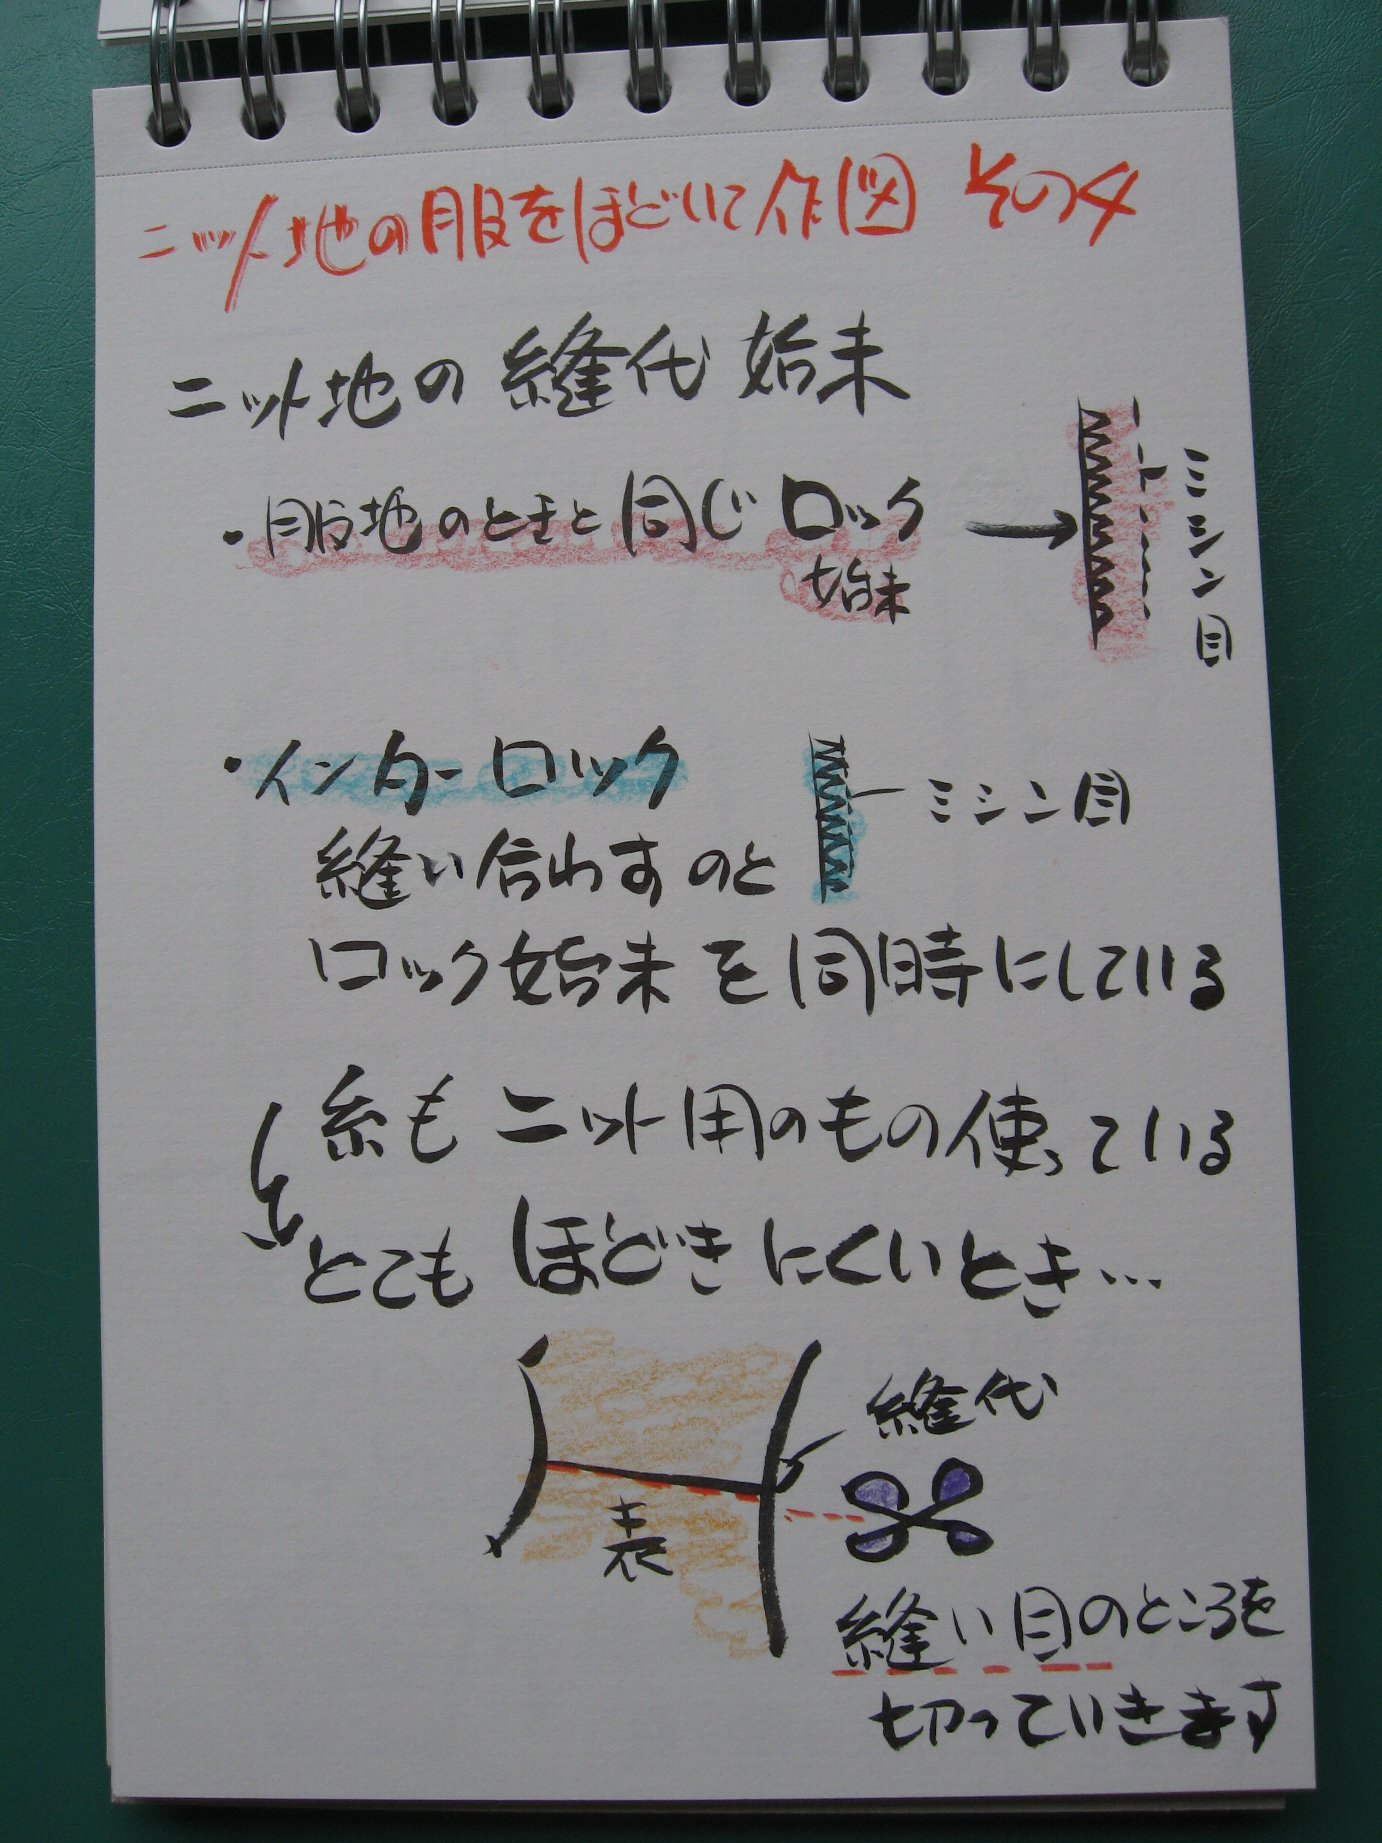 ニット地の服をほどいて作図 その4
ニット地の縫代始末
・服地のときと同じロック
始末
ミシン目
・インターロック
ミシン目
縫い合わすのと
ロック始末を同時にしている
糸もニット用のもの使っている
とてもほどきにくいとき…
縫代
表
縫い目のところを
切っていきます